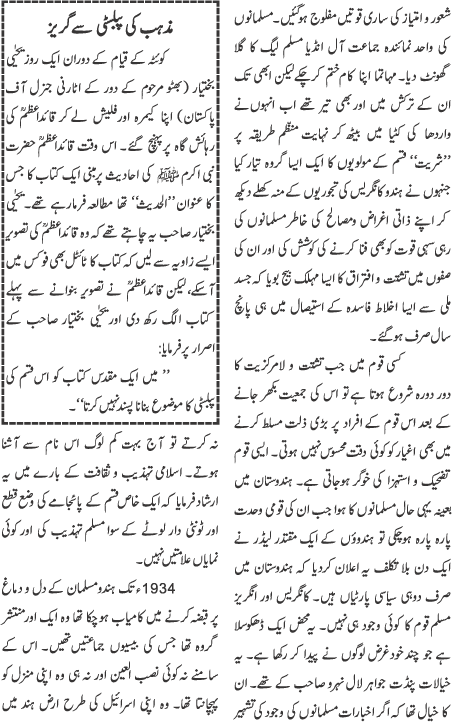 شعور و امتیاز کی ساری قوتیں مفلوج ہوگئیں۔ مسلمانوں
کی واحد نمائندہ جماعت آل انڈیا مسلم لیگ کا گلا
گھونٹ دیا۔ مہاتما اپنا کام ختم کرچکے لیکن ابھی تک
ان کے ترکش میں اور بھی تیر تھے اب انہوں نے
واردھا کی کٹیا میں بیٹھ کر نہایت منظم طریقہ پر
’’شریت‘‘ قسم کے مولویوں کا ایک ایسا گروہ تیار کیا
جنہوں نے ہندو کانگریس کی تجوریوں کے منہ کھلے دیکھ
کر اپنے ذاتی اغراض ومصالح کی خاطر مسلمانوں کی
رہی سہی قوت کو بھی فنا کرنے کی کوشش کی اور ان کی
صفوں میں تشتت و افتراق کا ایسا مہلک بیج بویا کہ جسد
ملی سے ایسا اخلاط فاسدہ کے استیصال میں ہی پانچ
سال صرف ہوگئے۔
کسی قوم میں جب تشتت و لامرکزیت کا
دور دورہ شروع ہوتا ہے تو اس کی جمعیت بکھر جانے
کے بعد اس قوم کے افراد پر بڑی ذلت مسلط کرنے
میں بھی اغیار کو کوئی دقت محسوس نہیں ہوتی۔ ایسی قوم
تضحیک و استہزا کی خوگر ہوجاتی ہے۔ ہندوستان میں
بعینہ یہی حال مسلمانوں کا ہوا جب ان کی قومی وحدت
پارہ پارہ ہوچکی تو ہندوؤں کے ایک مقتدر لیڈر نے
ایک دن بلا تکلف یہ اعلان کردیا کہ ہندوستان میں
صرف دو ہی سیاسی پارٹیاں ہیں۔ کانگریس اور انگریز
مسلم قوم کا کوئی وجود ہی نہیں۔ یہ محض ایک ڈھکوسلا
ہے جو چند خود غرض لوگوں نے پیدا کر رکھا ہے۔ یہ
خیالات پنڈت جواہر لال نہرو صاحب کے تھے۔ ان
کا خیال تھا کہ اگر اخبارات مسلمانوں کی وجود کی تشہیر
مذہب کی پبلسٹی سے گریز
کوئٹہ کے قیام کے دوران ایک روز یحییٰ
بختیار (بھٹو مرحوم کے دور کے اٹارنی جنرل آف
پاکستان) اپنا کیمرہ اور فلیش لے کر قائداعظمؒ کی
رہائش گاہ پر پہنچ گئے۔ اس وقت قائداعظمؒ حضرت
نبی اکرم ﷺ کی احادیث پر مبنی ایک کتاب کا جس
کا عنوان ’’الحدیث‘‘ تھا مطالعہ فرمارہے تھے۔ یحییٰ
بختیار صاحب یہ چاہتے تھے کہ وہ قائداعظمؒ کی تصویر
ایسے زاویہ سے لیں کہ کتاب کا ٹائٹل بھی فوکس میں
آسکے، لیکن قائداعظمؒ نے تصویر بنوانے سے پہلے
کتاب الگ رکھ دی اور یحییٰ بختیار صاحب کے
اصرار پر فرمایا:
’’میں ایک مقدس کتاب کو اس قسم کی
پبلسٹی کا موضوع بنانا پسند نہیں کرتا‘‘۔
نہ کرتے تو آج بہت کم لوگ اس نام سے آشنا
ہوتے۔ اسلامی تہذیب و ثقافت کے بارے میں یہ
ارشاد فرمایا کہ ایک خاص قسم کے پائجامے کی وضع قطع
اور ٹونٹی دار لوٹے کے سوا مسلم تہذیب کی اور کوئی
نمایاں علامتیں نہیں۔
1934ء تک ہندو مسلمان کے دل و دماغ
پر قبضہ کرنے میں کامیاب ہوچکا تھا وہ ایک اور منتشر
گروہ تھا جس کی بیسیوں جماعتیں تھیں۔ اس کے
سامنے نہ کوئی نصب العین اور نہ ہی وہ اپنی منزل کو
پہچانتا تھا۔ وہ اپنی اسرائیل کی طرح ارض ہند میں